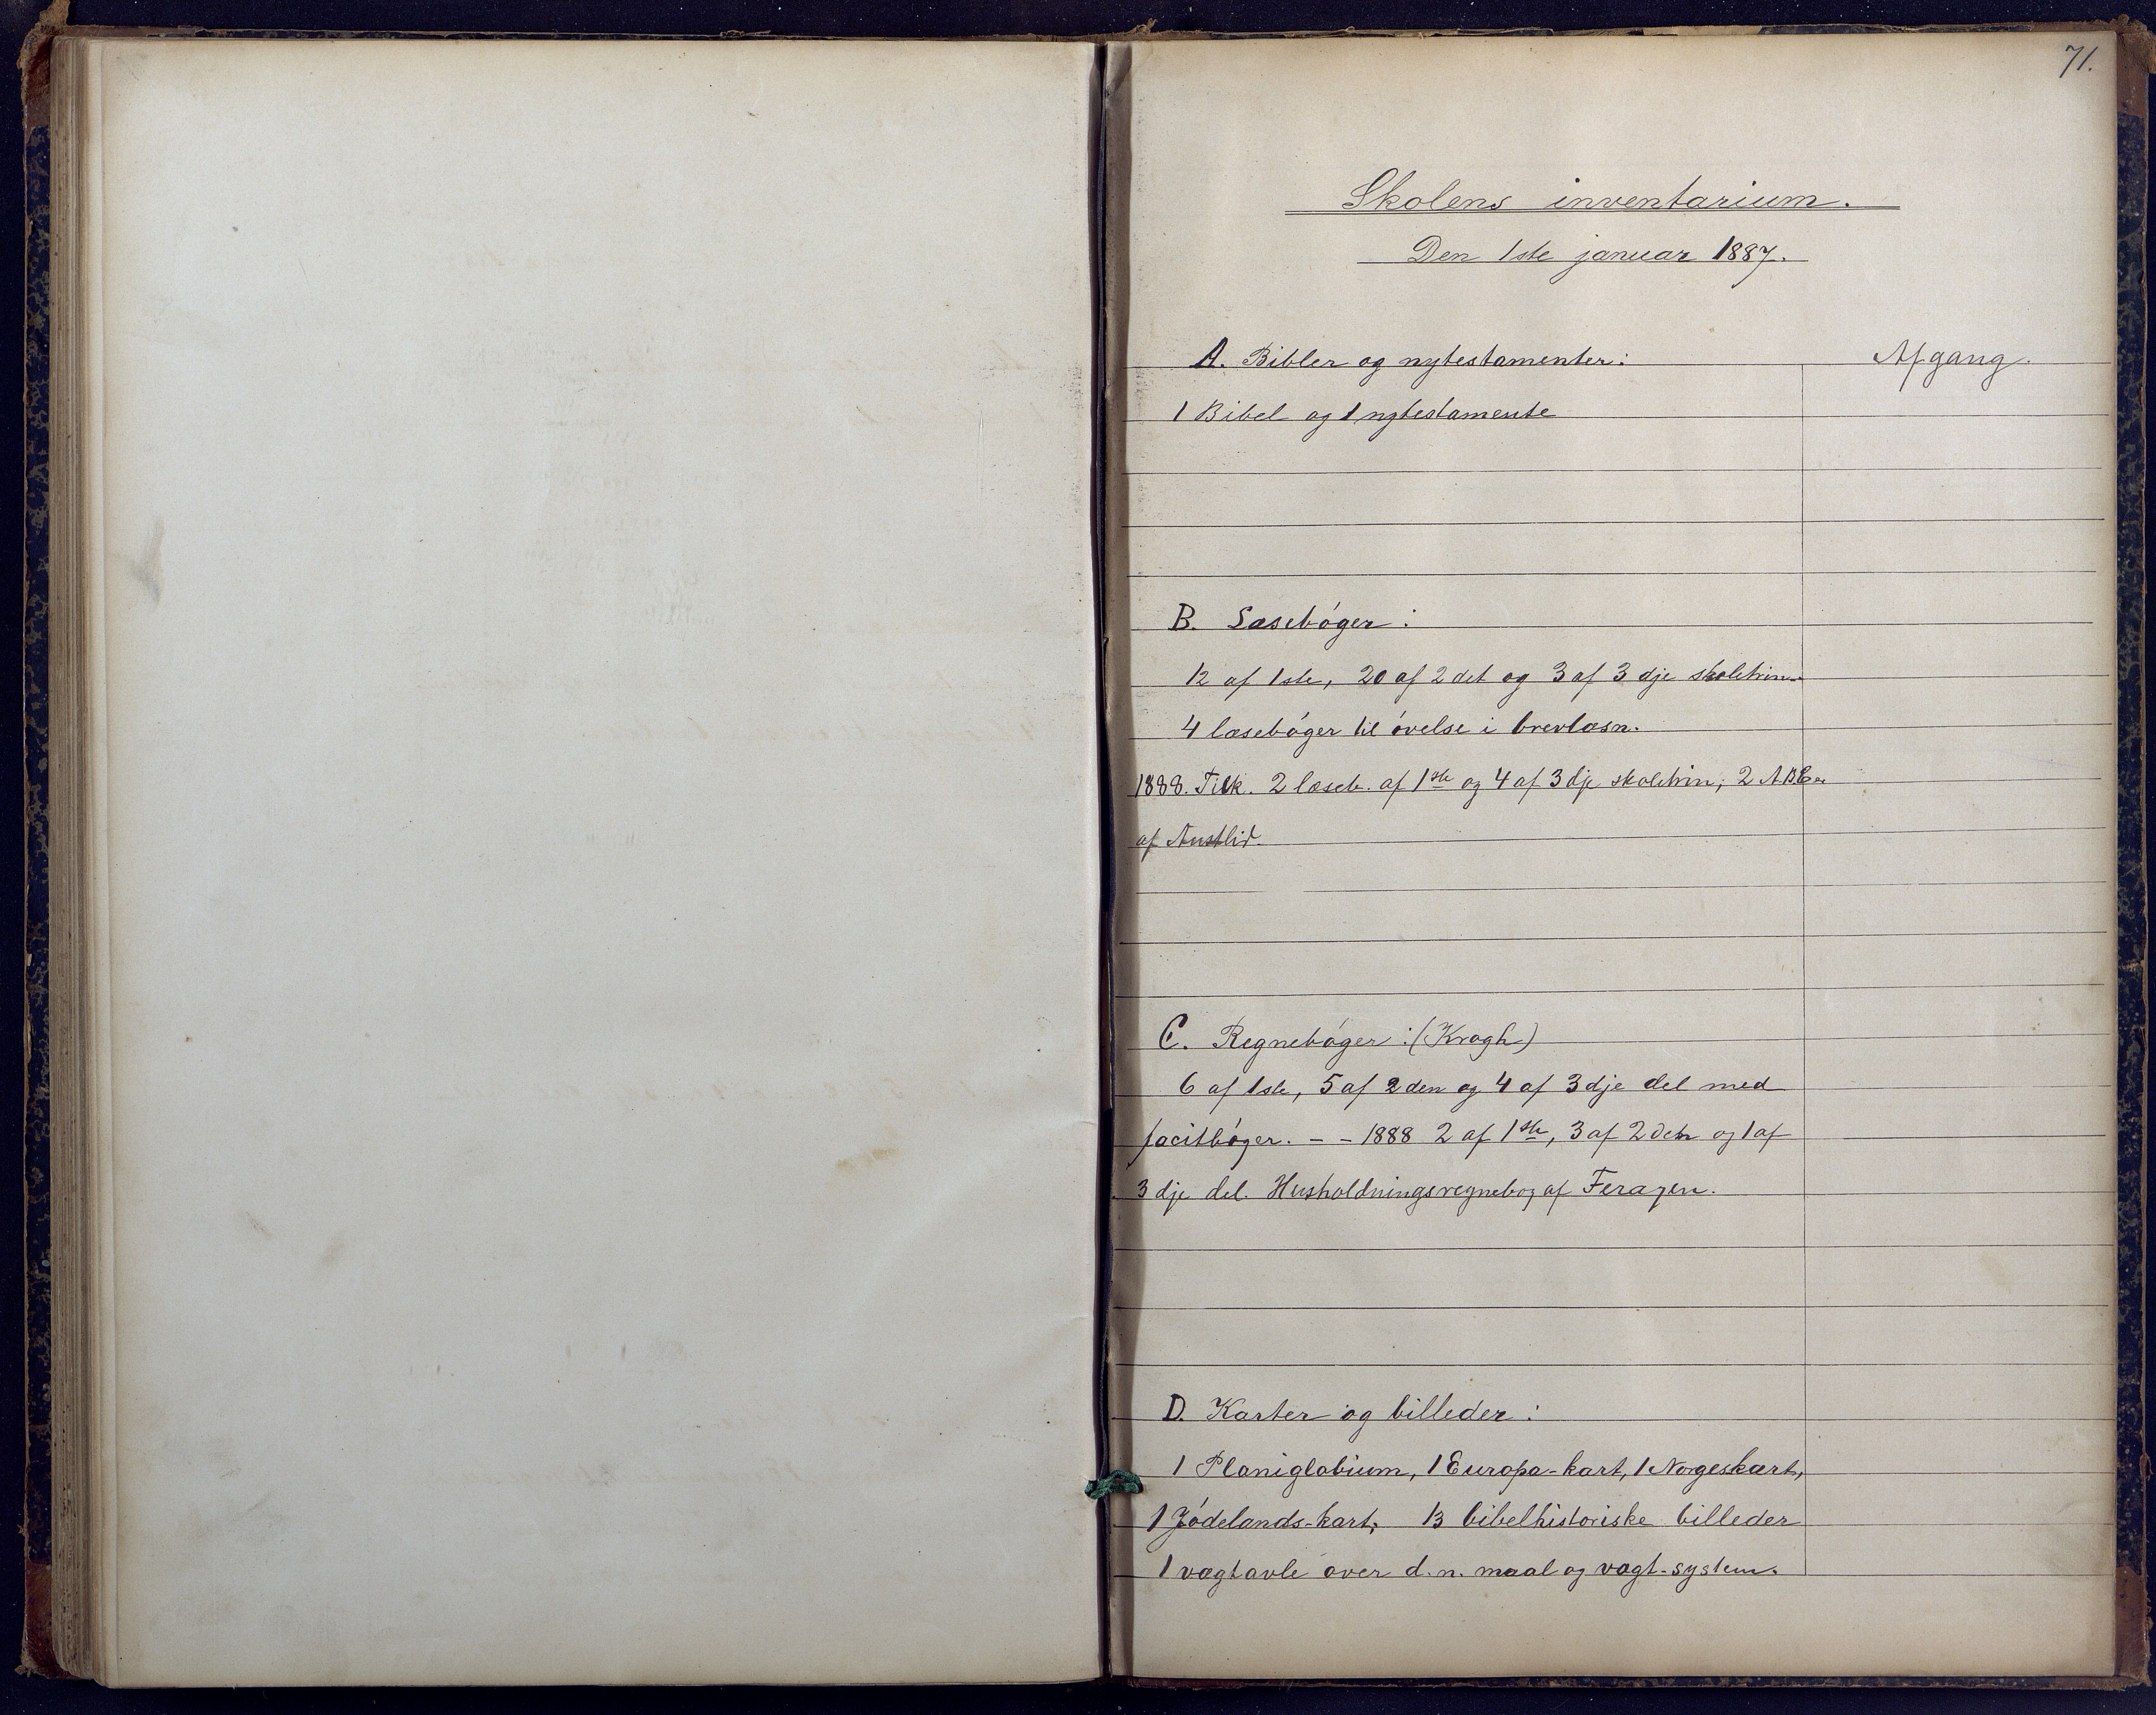 71.
Skolens inventarium.
Den 1ste januar 1887.
A. Bibler og nytestamenter:
Afgang.
1 Bibel og 1 nytestamente
B. Læsebøger:
12 af 1ste, 20 af 2det og 3 af 3dje skoletrin.
4 læsebøger til øvelse i brevlæsn.
1888. Tilk. 2 læseb. af 1ste og 4 af 3dje skoletrin; 2 ABC er
af Austlid.
C. Regnebøger: (Krogh)
6 af 1ste, 5 af 2den og 4 af 3dje del med
facitbøger. - - 1888 2 af 1ste, 3 af 2den og 1 af
3dje del. Husholdningsregnebog af Feragen.
D. Karter og billeder:
1 Planiglobium, 1 Europa-kart, 1 Norgeskart,
1 Jødelands-kart; 13 bibelhistoriske billeder
1 vægtavle over d. n. maal og vægt-system.